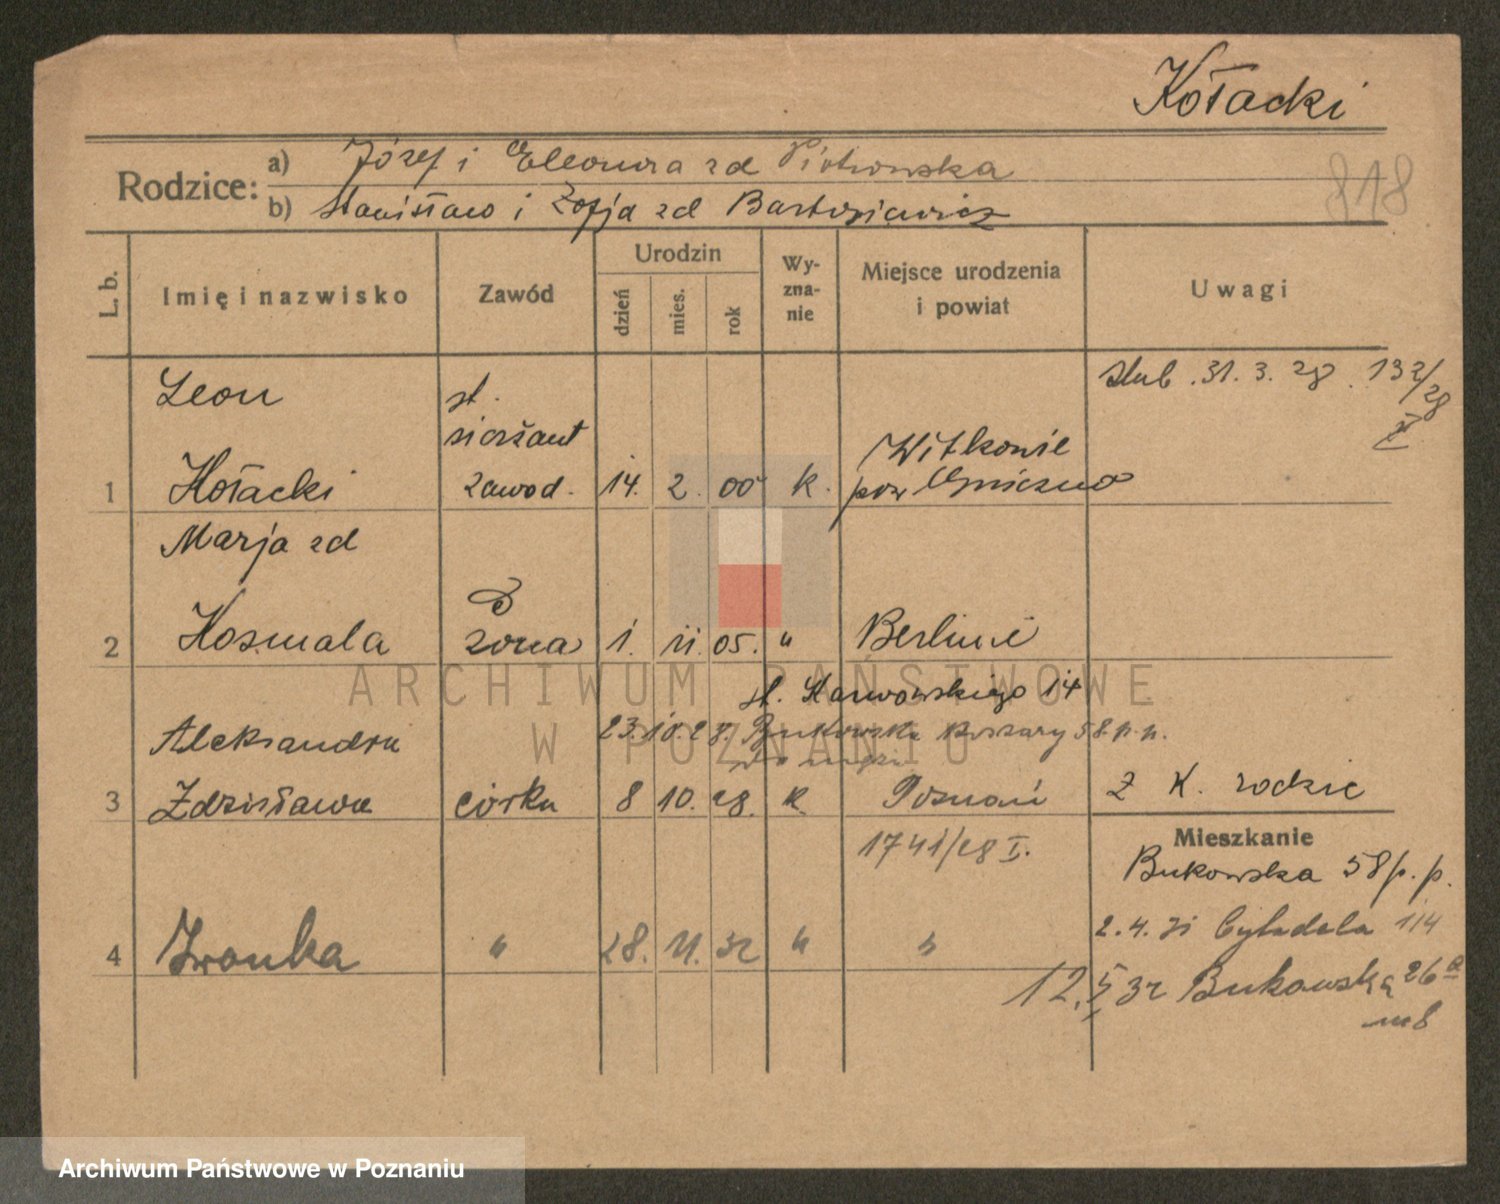 Kołacki
818
Rodzice: a) Józef i Eleonora zd Piotrowska
b) Stanisław i Zofja zd Bartosiewicz
L. b. Imię i nazwisko Zawód Urodzin dzień mies. rok Wy-zna-nie Miejsce urodzenia i powiat Uwagi
ślub . 31. 3. 28 . 132/28
Leon st.
sierżant Witkowie
1 Kołacki zawod. 14. 2. 00 k. pow Gniezno
Marja zd
2 Kosmala żona 1. 11. 05. " Berlinie
ARCHIWUM PAŃSTWOWE
W POZNANIU
14
Aleksandra 23.10.28. Bukowska Koszary 58 p.p.
3 Zdzisława córka 8 10. 28. k Poznań z K. rodzic
1741/28 I. Mieszkanie
Bukowska 58 p. p.
2. 4. 31 Cytadela 1/4
4 Iwonka " 28. 11. 31 " "
12. 5 32 Bukowska 26a
m 8
Archiwum Państwowe w Poznaniu